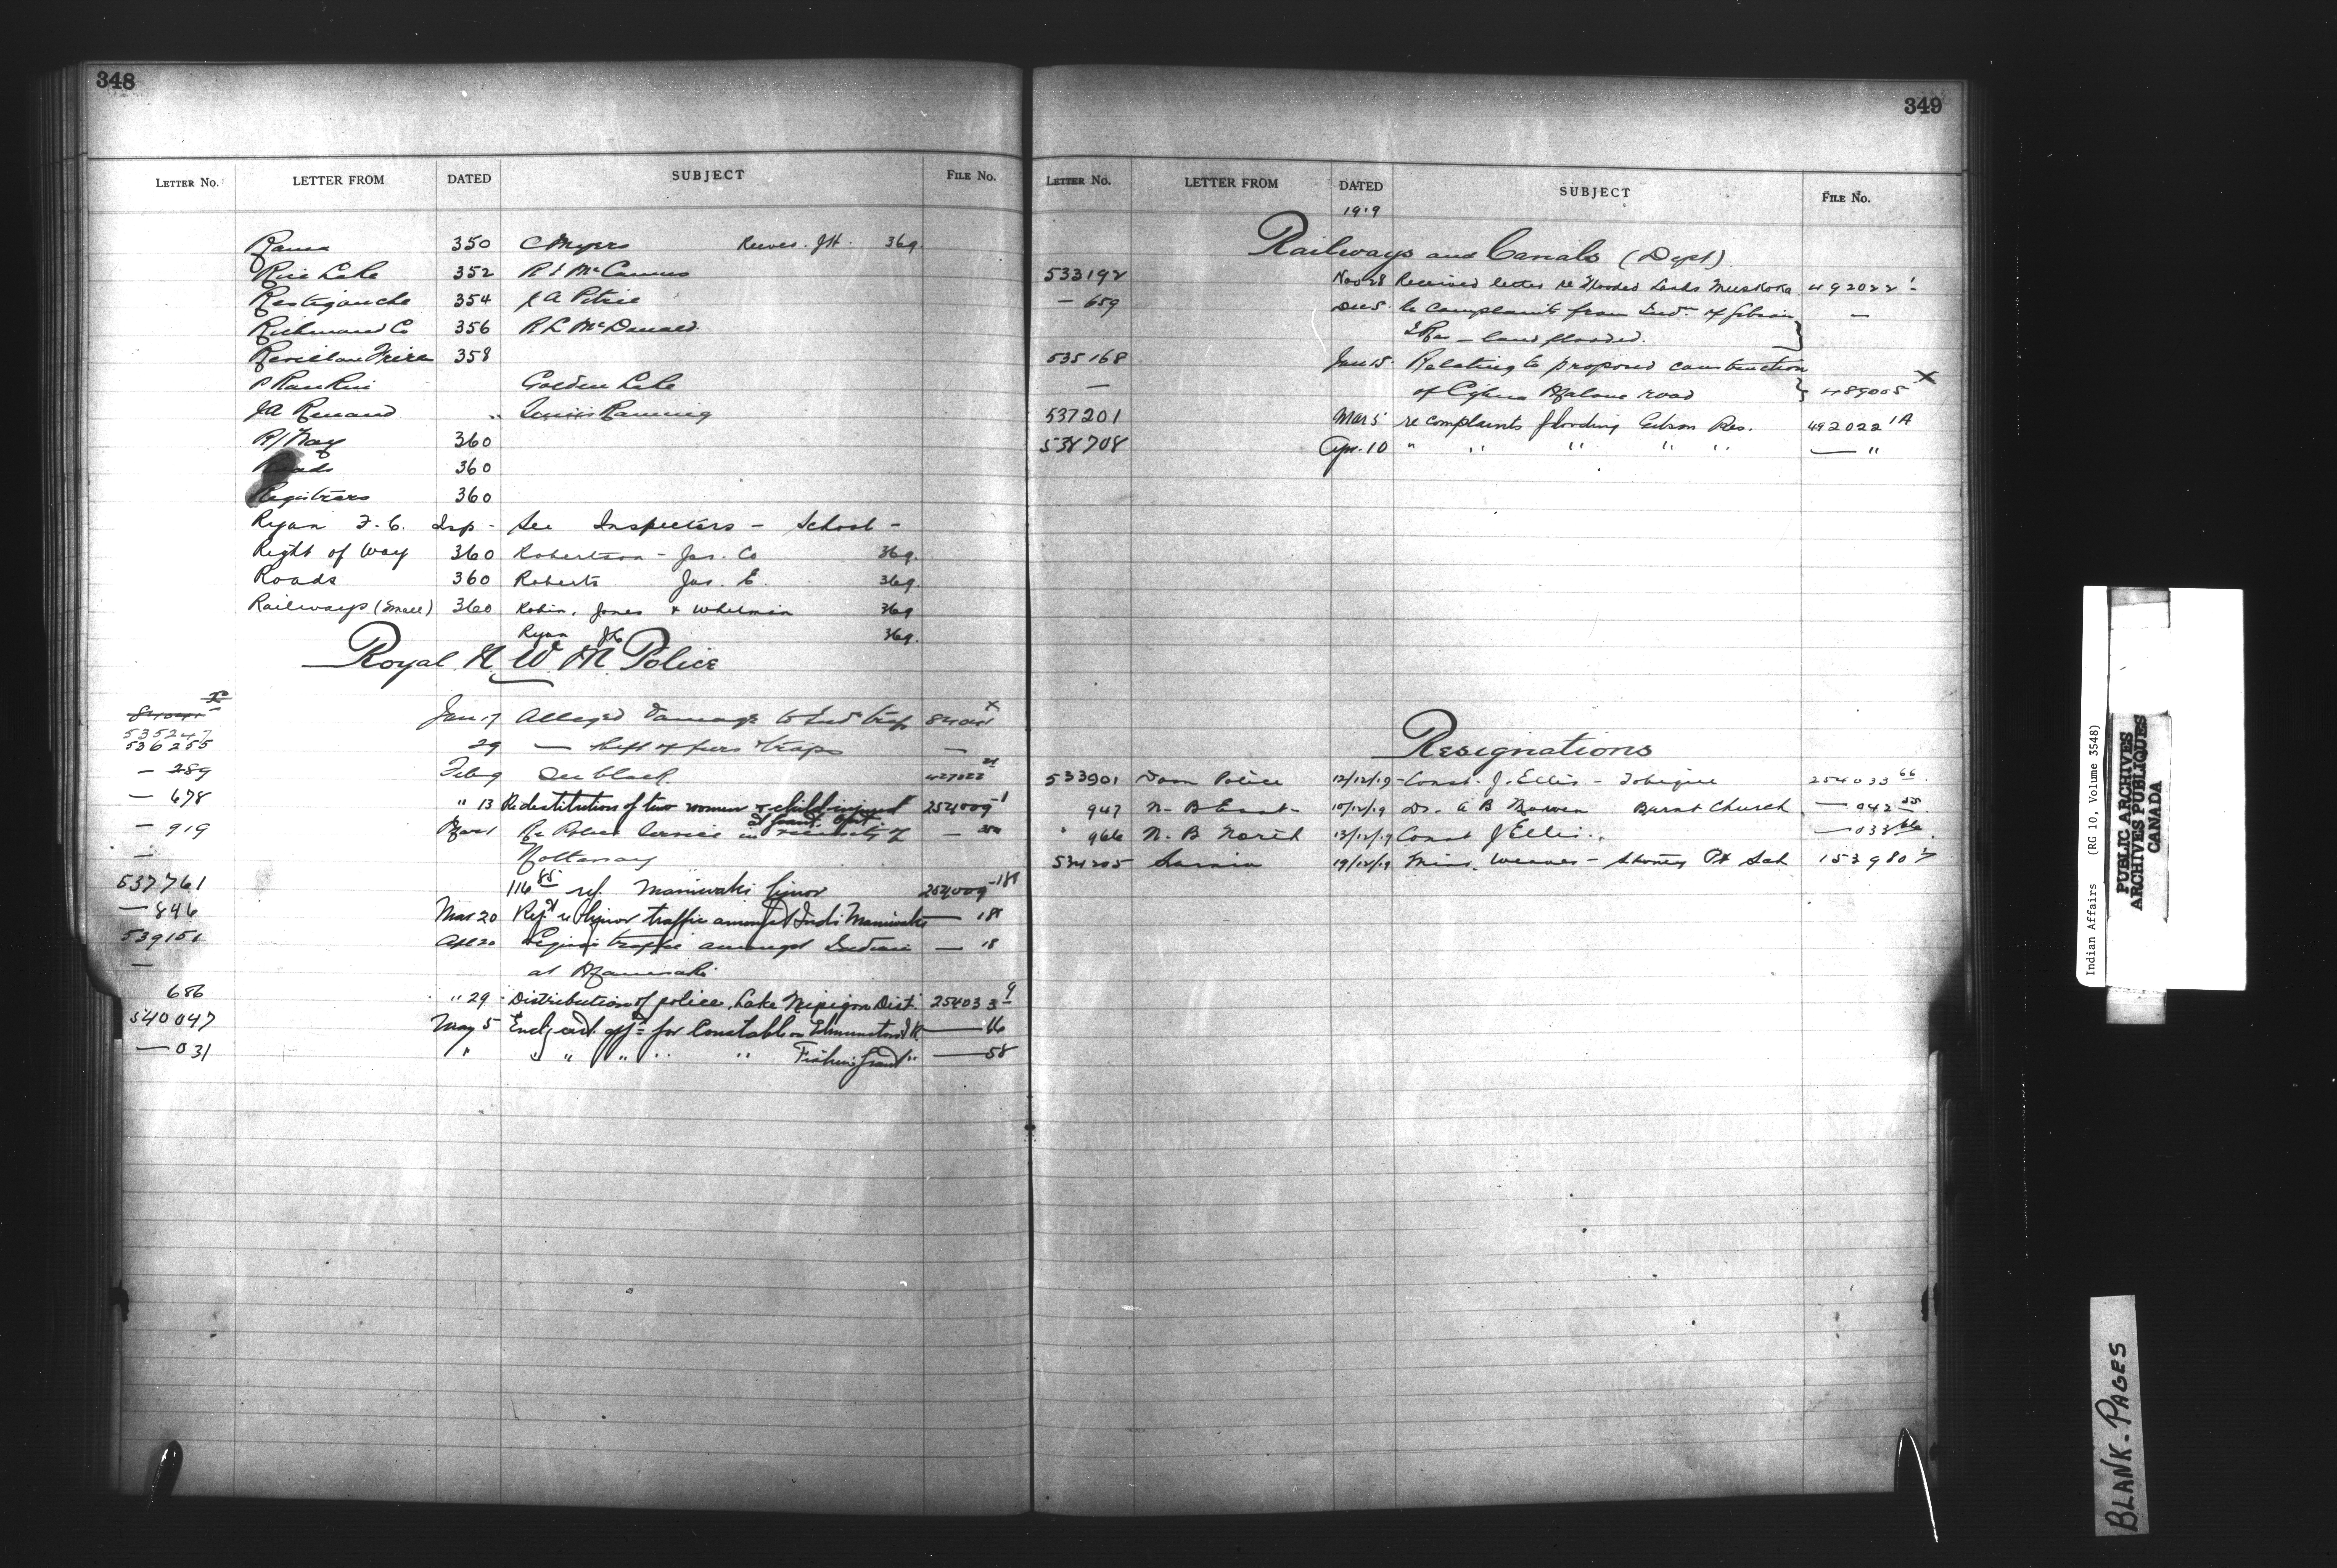 348
LETTER No. LETTER FROM DATED SUBJECT FILE No.
Rama 350 C Myers Reeves. J H. 369.
Rice Lake 352 R J McCamus
Restigouche 354 J A Pitrie
Richmond Co 356 R L McDonald
Revillon Freres 358
P Rankin Golden Lake
JA Renaud
R/Way 360
Roads 360
Registrars 360
Ryan F. C. Insp - See Inspectors - School -
Right of Way 360 Robertson - Jas. Co 369.
Roads 360 Roberts Jas. E. 369.
Railways (Small) 360 Robin, Jones & Whitman 369
Ryan 369.
Royal N W M Police
535247 Jan 17 Alleged Damage to Ind trap x
536255 29 — theft of furs & traps —
— 289 Feb 9 See black
— 678 " 13 Re destitution of two women & child injured 254009
— 919 Mar 1 Re Police Service in vicinity of —
—
537761 116 85 ref. Maniwaki liquor 254009-18
— 846 Mar 20 Rept re liquor traffic amongst Inds Maniwaki — 18
539151 Apl 20 Liquor traffic amongst Indians — 18
— at Maniwaki
686 " 29 Distribution of police, Lake Nipigon Dist. 254033 9
540047 May 5 for Constable — 66
— 031 " " " " " — 58
349
LETTER No. LETTER FROM DATED SUBJECT FILE No.
1919
Railways and Canals (Dept)
533192 Nov 28 Received letter re flooded lands Muskoka 492022 1
— 659 Dec 5 re complaints from Inds of Gibson —
I Res — land flooded.
535168 Jan 15 Relating to proposed construction
— of road 489005 x
537201 Mar 5 re complaints flooding Gibson Res. 492022 1A
538708 Apr. 10 " " " " " — "
Resignations
533901 Dom Police 12/12/19 - Const. J. Ellis - Tobique 254033 66
947 N. B East - 10/12/19 Dr. A B Burnt Church — 042
" 966 N. B North 13/12/19 Const J Ellis — 033 66
534205 Sarnia 19/12/19 Miss Weaver - Stoney Pt Sch 153980
Indian Affairs (RG 10, Volume 3548)
PUBLIC ARCHIVES
ARCHIVES PUBLIQUES
CANADA
BLANK-PAGES